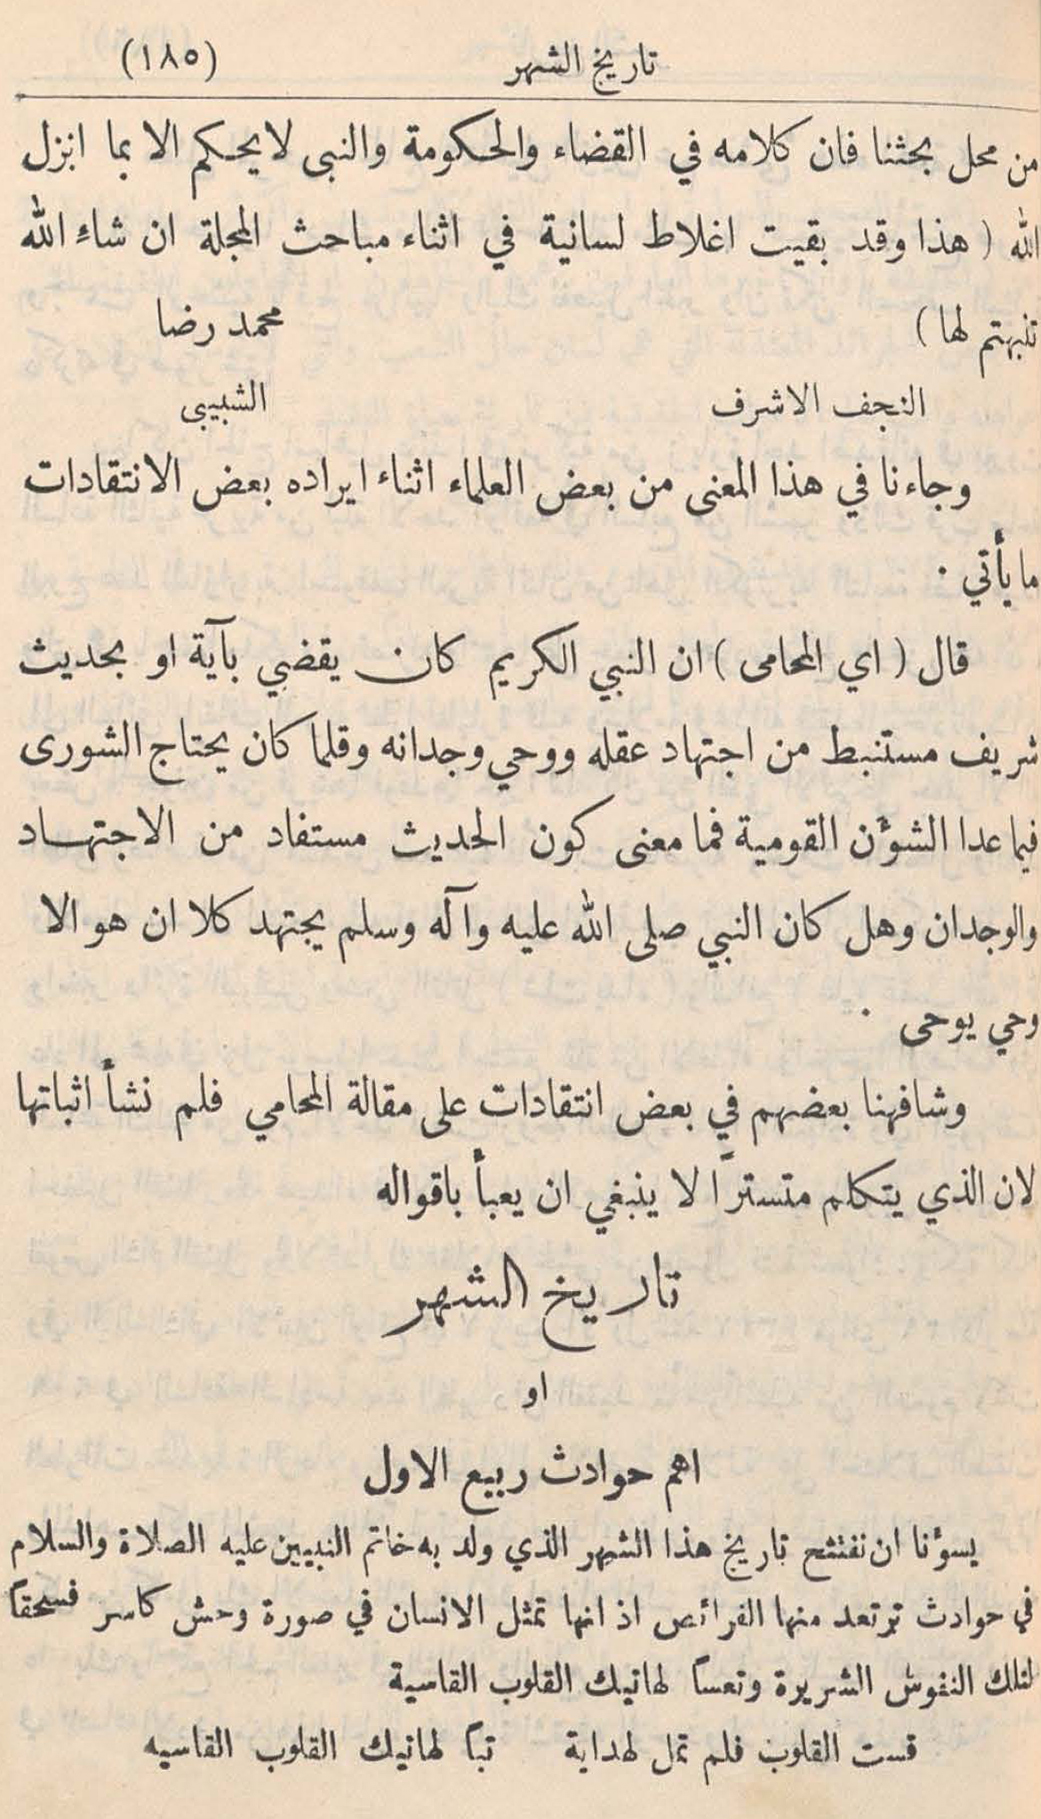 تاريخ الشهر (١٨٥)
من محل بحثنا فان كلامه في القضاء والحكومة والنبى لايحكم الا بما انزل
الله ( هذا وقد بقيت اغلاط لسانية في اثناء مباحث المجلة ان شاء الله
تنبهتم لها ) محمد رضا
النجف الاشرف الشبيبى
وجاءنا في هذا المعنى من بعض العلماء اثناء ايراده بعض الانتقادات
مايأتي .
قال ( اي المحامى ) ان النبي الكريم كان يقضي بآية او بحديث
شريف مستنبط من اجتهاد عقله ووحي وجدانه وقلما كان يحتاج الشورى
فيما عدا الشؤن القومية فما معنى كون الحديث مستفاد من الاجتهـاد
والوجدان وهل كان النبي صلى الله عليه وآله وسلم يجتهد كلا ان هو الا
وحي يوحى .
وشافهنا بعضهم في بعض انتقادات على مقالة المحامي فلم نشأ اثباتها
لان الذي يتكلم متستراً لا ينبغي ان يعبأ باقواله
تاريخ الشهر
او
اهم حوادث ربيع الاول
يسؤنا ان نفتتح تاريخ هذا الشهر الذي ولد به خاتم النبيين عليه الصلاة والسلام
في حوادث ترتعد منها الفرائص اذ انها تمثل الانسان في صورة وحش كاسر فسحقاً
لتلك النفوس الشريرة وتعساً لهاتيك القلوب القاسية
قست القلوب فلم تمل لهداية تباً لهاتيك القلوب القاسيه